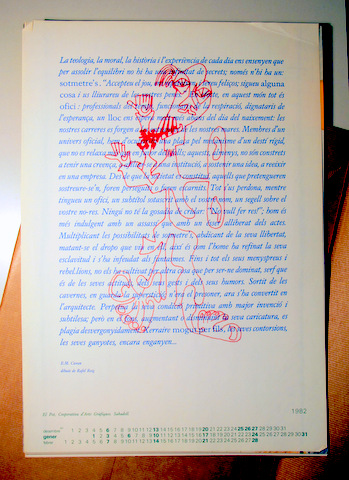 La teologia, la moral, la història i l'experiència de cada dia ens ensenyen que
per assolir l'equilibri no hi ha una infinitat de secrets; només n'hi ha un:
sotmetre's. "Accepteu el jou, i sereu feliços; sigueu alguna
cosa i us lliurareu de les vostres penes". en aquest món tot és
ofici: professionals del temps, funcionaris de la respiració, dignataris de
l'esperança, un lloc ens espera abans del dia del naixement: les
nostres carreres es forgen a les nostres mares. Membres d'un
univers oficial, hem d'ocupar una plaça pel mecanisme d'un destí rígid,
que no es relaxa en favor dels folls; aquests, almenys, no són constrets
a tenir una creença, a afiliar-se a una institució, a sostenir una idea, a reeixir
en una empresa. Des de que la societat es constituí, aquells que pretengueren
sostreure-s'en, foren perseguits o escarnits. Tot s'us perdona, mentre
tingueu un ofici, un subtítol sota el vostre nom, un segell sobre el
vostre no-res. Ningú no té la gosadia de cridar: "No vull fer res!"; hom és
més indulgent amb un assassí que amb un ésser alliberat dels actes.
Multiplicant les possibilitats de sotmetre's, abdicant de la seva llibertat,
matant-se el dropo que viu en ell, així és com l'home ha refinat la seva
esclavitud i s'ha infeudat als fantasmes. Fins i tot els seus menyspreus i
rebel.lions, no els ha cultivat per altra cosa que per ser-ne dominat, serf que
és de les seves actituds, dels seus gests i dels seus humors. Sortit de les
cavernes, en guarda la superstició; n'era el presoner, ara s'ha convertit en
l'arquitecte. Perpetua la seva condició primitiva amb major invenció i
subtilesa; però en el fons, augmentant o disminuint la seva caricatura, es
plagia desvergonyidament. Xerraire mogut per fils, les seves contorsions,
les seves ganyotes, encara enganyen...
E.M. Cioran
El Pot. Cooperativa d'Arts Gràfiques. Sabadell
1982
desembre 1 2 3 4 5 6 7 8 9 10 11 12 13 14 15 16 17 18 19 20 21 22 23 24 25 26 27 28 29 30 31
gener 1 2 3 4 5 6 7 8 9 10 11 12 13 14 15 16 17 18 19 20 21 22 23 24 25 26 27 28 29 30 31
febrer 1 2 3 4 5 6 7 8 9 10 11 12 13 14 15 16 17 18 19 20 21 22 23 24 25 26 27 28